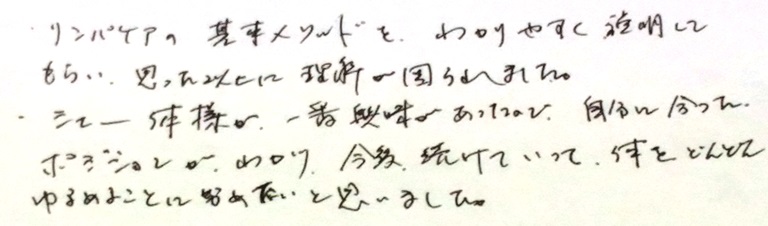 ・リンパケアの基本メソッドを、わかりやすく説明して
もらい、思った以上に理解が図られました。
・シェー体様が、一番興味があったので、自分に合った、
ポジションが、わかり、今後、続けていって、体をどんどん
ゆるめることに努めたいと思いました。